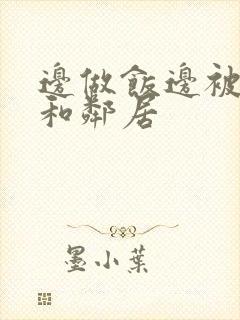 邊做飯邊被
和鄰居
墨小葉